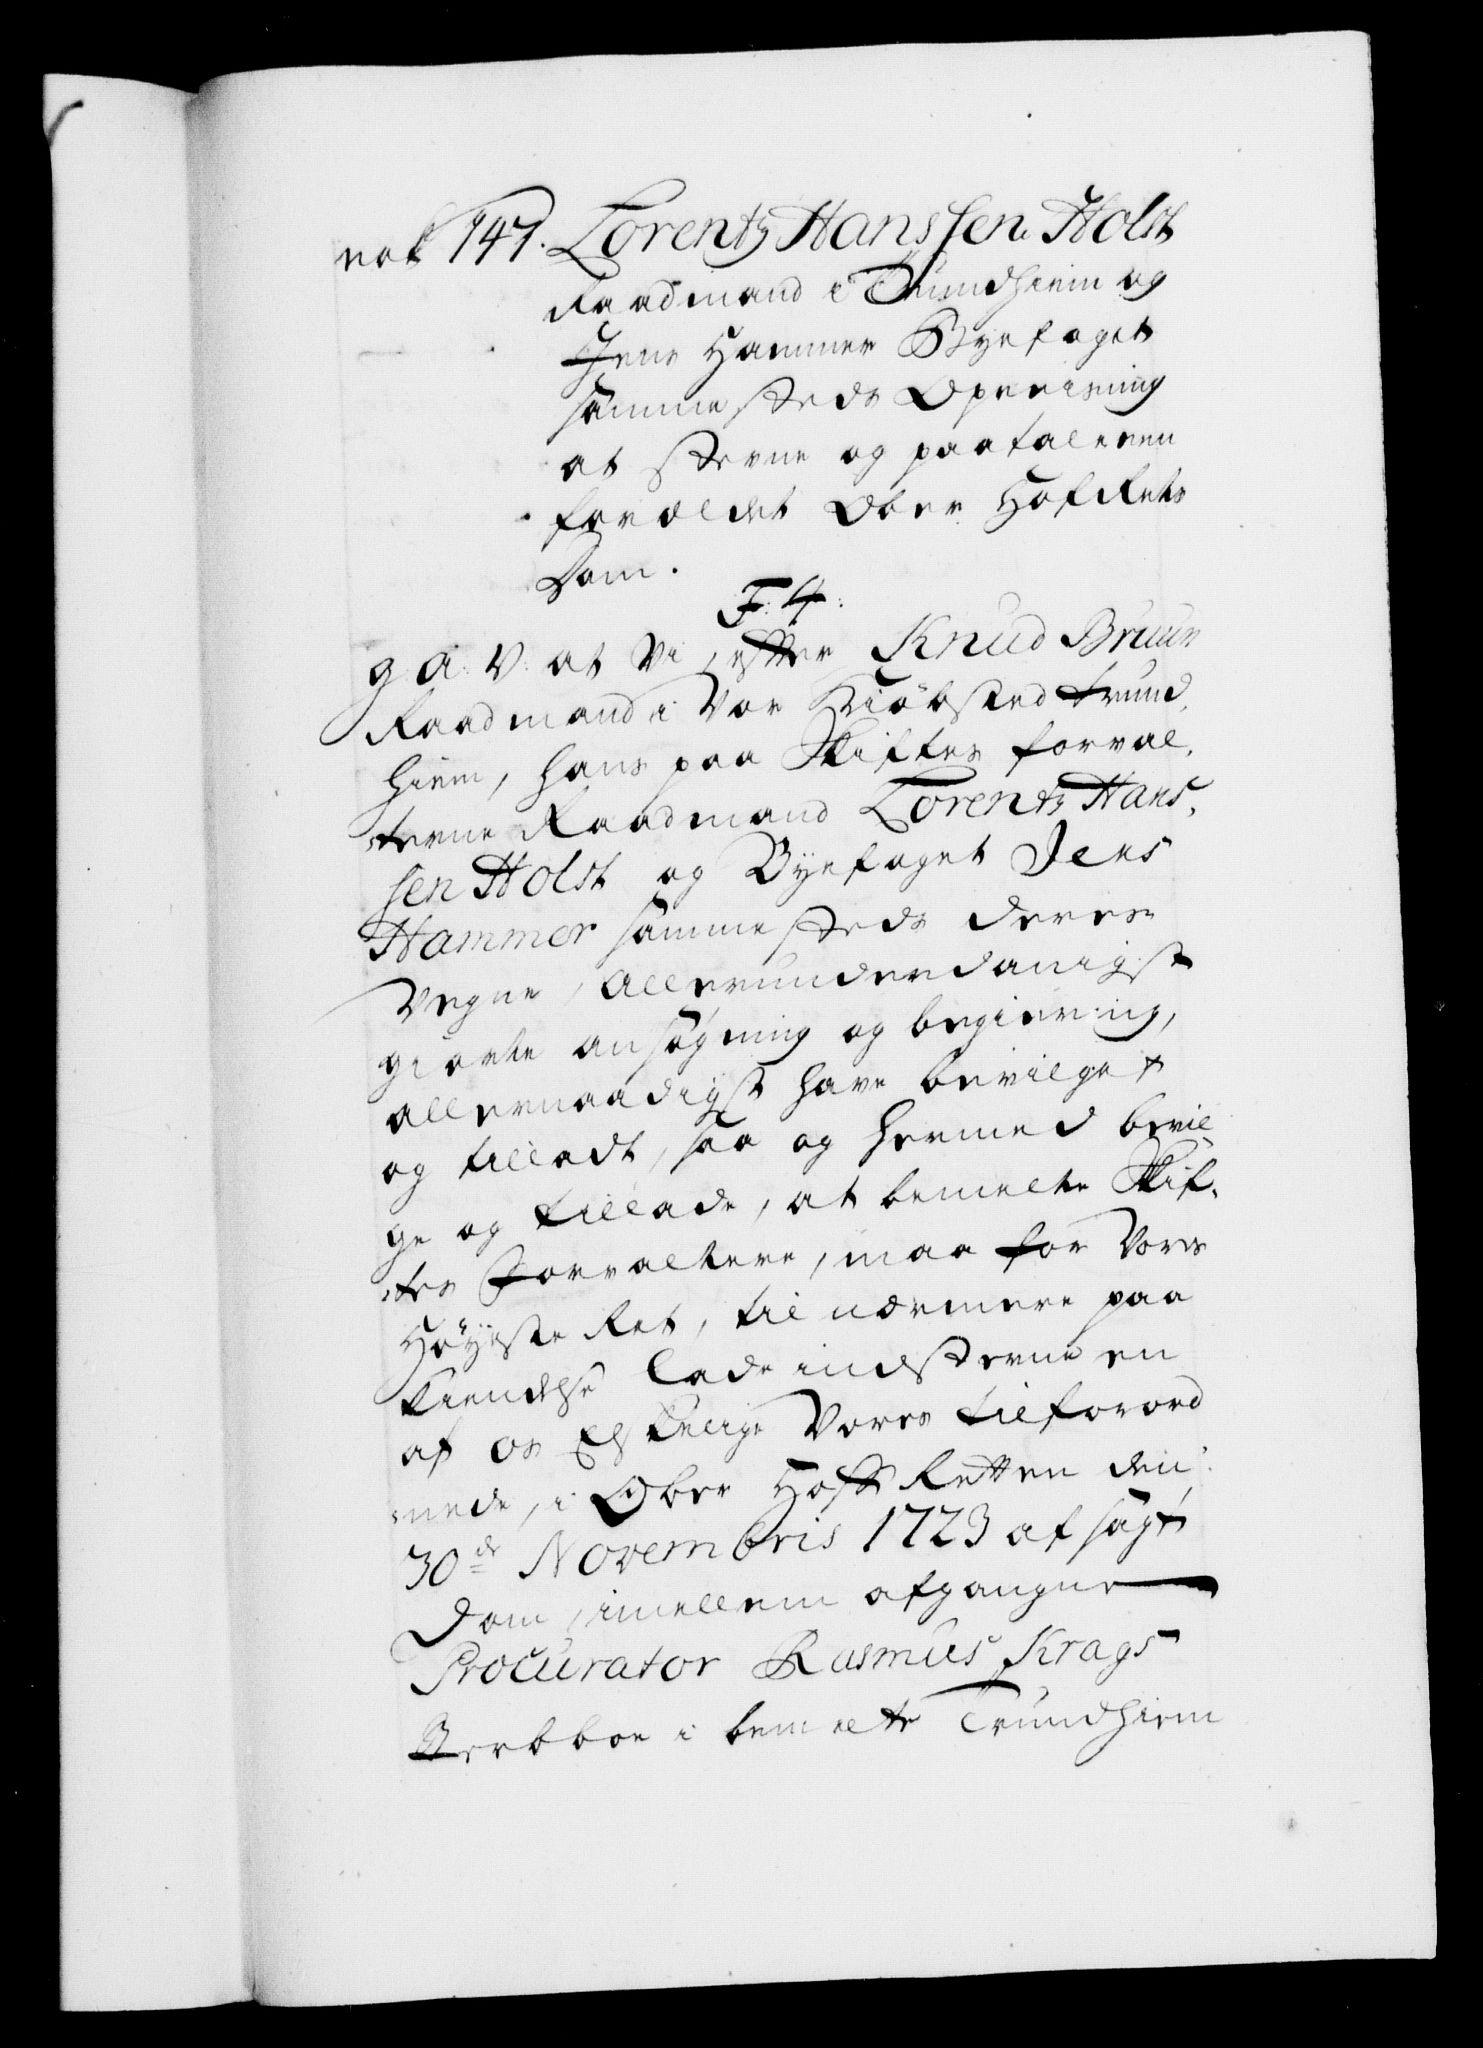 not 147. Lorentz Hanssen Holst
Raadmand i Trundhiem og
Jens Hammer Byefoget
sammesteds Opreisning
at stevne og paatale en
forældet Ober Hof Rets
Dom.
F: 4:
g a: v: at Vi, efter Knud Bruun
Raadmand i Vor Kiöbsted Trund,
hiem, hans paa Skiftes forval,
terne Raadmand Lorentz Hans,
sen Holst og Byefoget Jens
Hammer sammesteds deres
Vegne, Allerunderdanigst
giorte ansøgning og begiering,
allernaadigst have bevilget
og tilladt, saa og hermed bevil
ge og tillade, at bemelte Skif,
tes Forvaltere, maa for Vores
Høyeste Ret, til nærmere paa
kiendelse lade indstevne en
af os Elskelige Vores tilforord
nede, i Ober Hoff Retten den
30de Novembris 1723 afsagt
Dom, imellem afgangne
Procurator Rasmus Krags
Sterbboe i bemelte Trundhiem